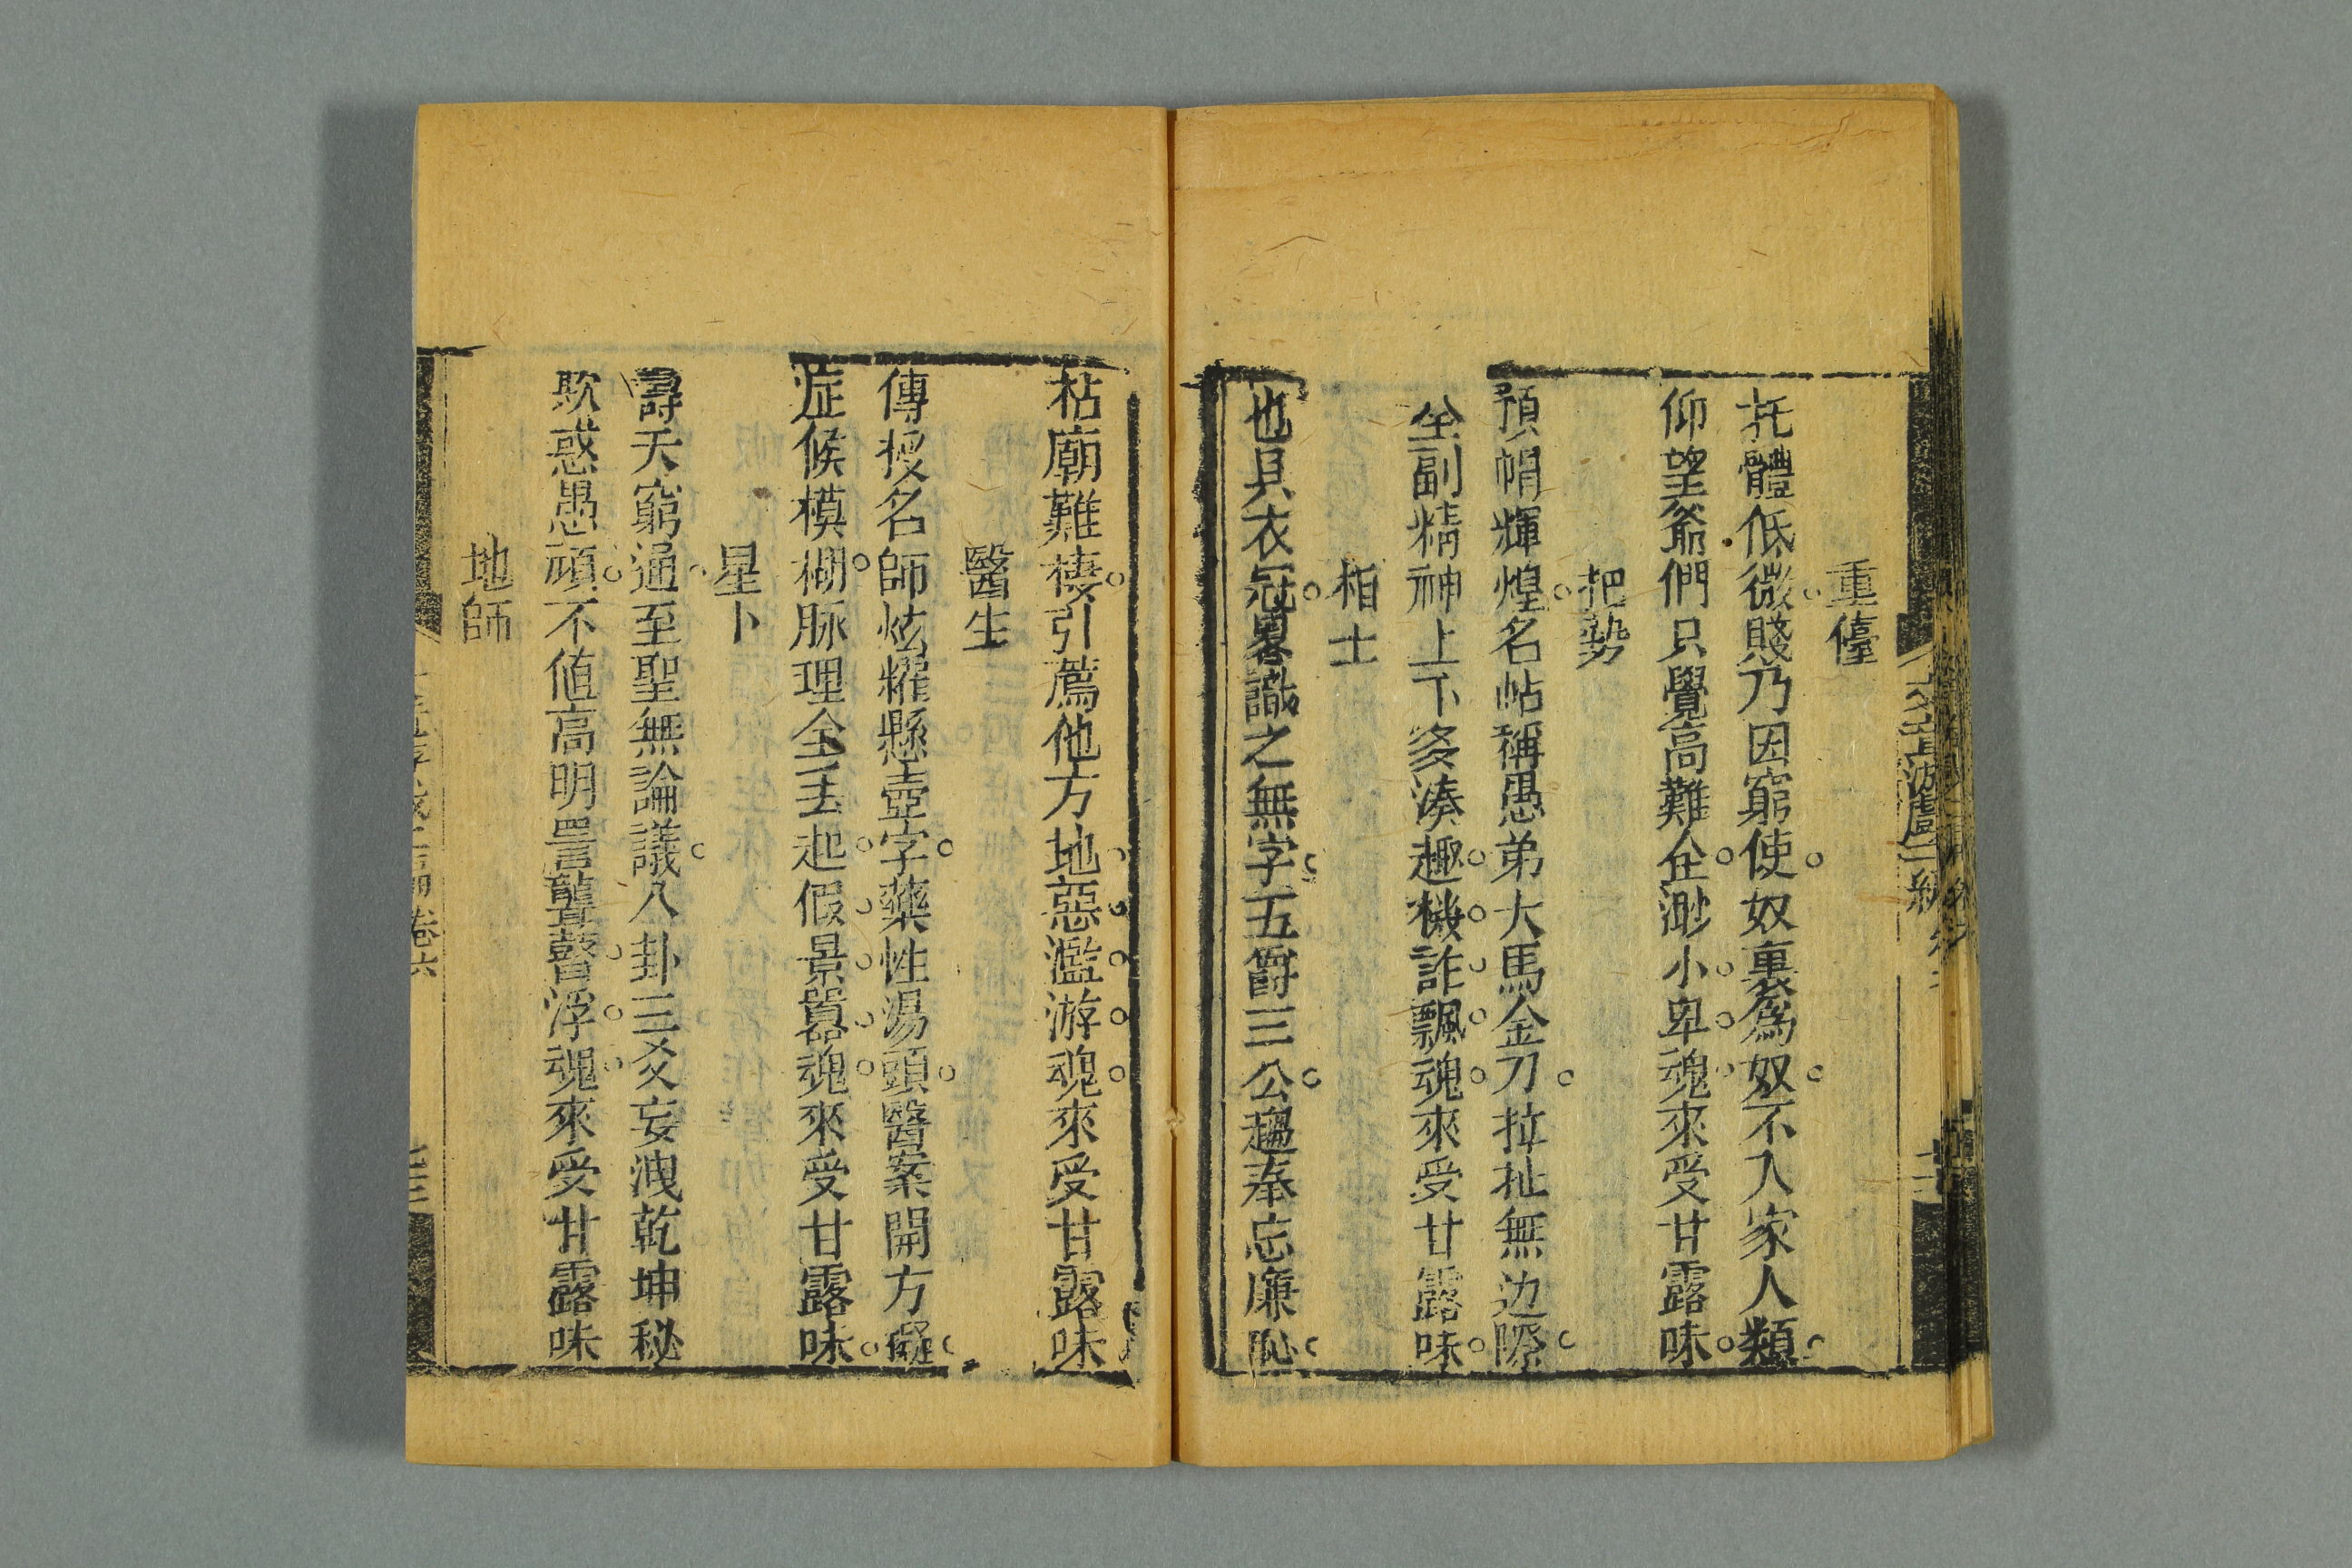 重儓
托體低微賤乃因窮使奴裏爲奴不入家人類
仰望爺們只覺高難企渺小卑魂來受甘露味
把勢
預帽輝煌名帖稱愚弟大馬金刀拉扯無边際
全副精神上下多湊趣機詐飄魂來受甘露味
相士
也具衣冠畧識之無字五爵三公趨奉忘廉恥
枯廟難棲引薦他方地惡濫游魂來受甘露味
醫生
傳授名師炫耀懸壺字藥性湯頭醫案開方礙
症候模棚脉理全丢起假景囂魂來受甘露味
星卜
壽夭窮通至聖無論議八卦三爻妄洩乾坤秘
欺惑愚頑不値高明詈聾瞽浮魂來受甘露味
地師
卷六